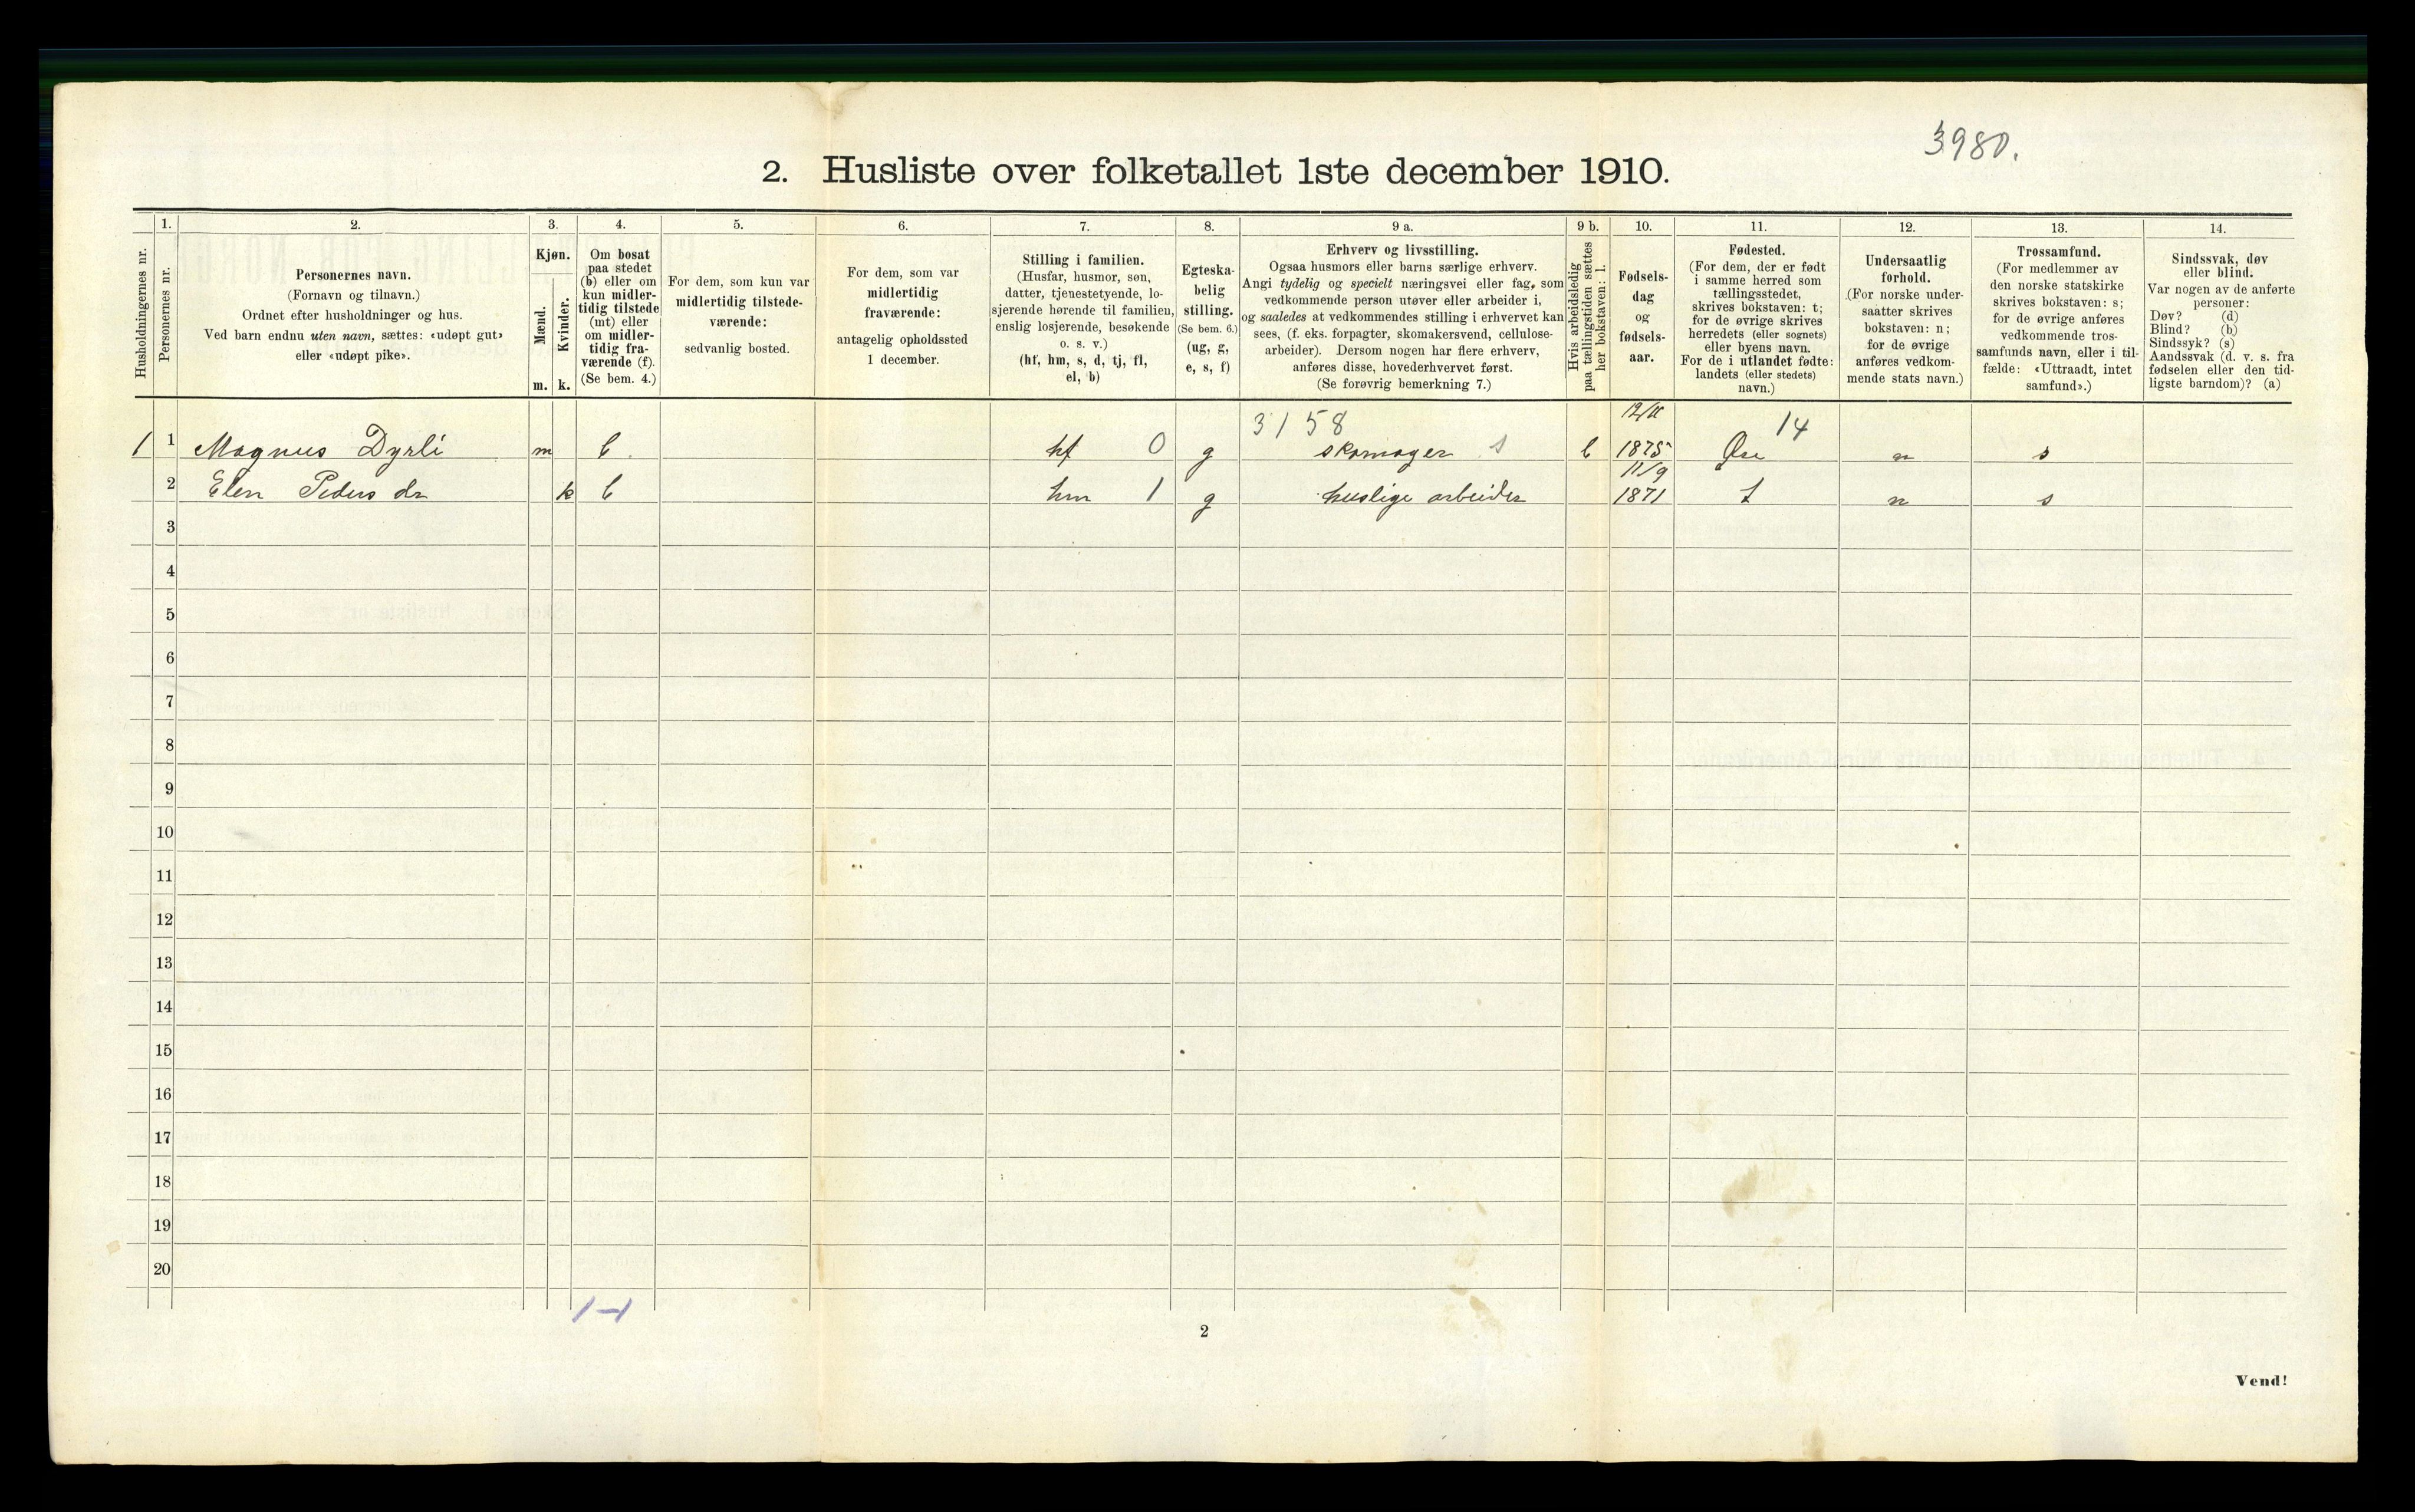 3980.
2. Husliste over folketallet 1ste december 1910.
Husholdningernes nr.
1.
Personernes nr.
2.
Personernes navn.
(Fornavn og tilnavn.)
Ordnet efter husholdninger og hus.
Ved barn endnu uten navn, sættes: «udøpt gut»
eller «udøpt pike».
3.
Kjøn.
Mænd.
Kvinder.
m. k.
4.
Om bosat
paa stedet
(b) eller om
kun midler-
tidig tilstede
(mt) eller
om midler-
tidig fra-
værende (f).
(Se bem. 4.)
5.
For dem, som kun var
midlertidig tilstede-
værende:
sedvanlig bosted.
6.
For dem, som var
midlertidig
fraværende:
antagelig opholdssted
1 december.
7.
Stilling i familien.
(Husfar, husmor, søn,
datter, tjenestetyende, lo-
sjerende hørende til familien,
enslig losjerende, besøkende
o. s. v.)
(hf, hm, s, d, tj, fl,
el, b)
8.
Egteska-
belig
stilling.
(Se bem. 6.)
(ug, g,
e, s, f)
9 a.
Erhverv og livsstilling.
Ogsaa husmors eller barns særlige erhverv.
Angi tydelig og specielt næringsvei eller fag, som
vedkommende person utøver eller arbeider i,
og saaledes at vedkommendes stilling i erhvervet kan
sees, (f. eks. forpagter, skomakersvend, cellulose-
arbeider). Dersom nogen har flere erhverv,
anføres disse, hovederhvervet først.
(Se forøvrig bemerkning 7.)
9 b.
Hvis arbeidsledig
paa tællingstiden sættes
her bokstaven: l.
10.
Fødsels-
dag
og
fødsels-
aar.
11.
Fødested.
(For dem, der er født
i samme herred som
tællingsstedet,
skrives bokstaven: t;
for de øvrige skrives
herredets (eller sognets)
eller byens navn.
For de i utlandet fødte:
landets (eller stedets)
navn.)
12.
Undersaatlig
forhold.
(For norske under-
saatter skrives
bokstaven: n;
for de øvrige
anføres vedkom-
mende stats navn.)
13.
Trossamfund.
(For medlemmer av
den norske statskirke
skrives bokstaven: s;
for de øvrige anføres
vedkommende tros-
samfunds navn, eller i til-
fælde: «Uttraadt, intet
samfund».)
14.
Sindssvak, døv
eller blind.
Var nogen av de anførte
personer:
Døv? (d)
Blind? (b)
Sindssyk? (s)
Aandssvak (d. v. s. fra
fødselen eller den tid-
ligste barndom)? (a)
3158 14
1 1 Magnus Dyrli m b. hf 0 g skomager s 1875 n s
11/9
2 Elen Peders dr k b hm 1 g huslige arbeider 1871 t n s
3
4
5
6
7
8
9
10
11
12
13
14
15
16
17
18
19
20
1-1
2
Vend!